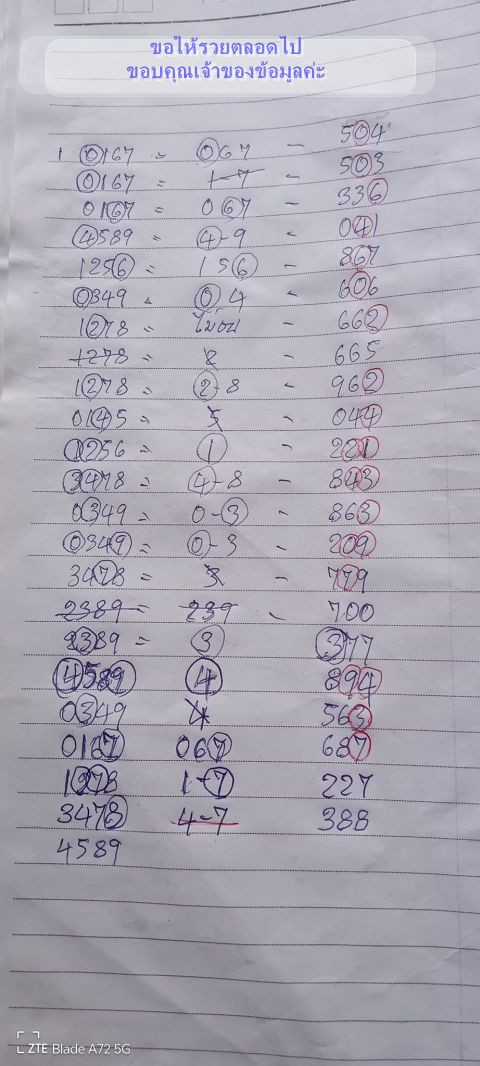 ขอให้รวยตลอดไป
ขอบคุณเจ้าของข้อมูลค่ะ
1 0167 = 067 - 504
0167 = 1-7 - 503
0167 = 067 - 336
4589 = 4-9 - 041
1256 = 156 - 867
0349 = 04 - 606
1278 = ไม่ชน - 662
1278 = 2 - 665
1278 = 2-8 - 962
0145 = 5 - 044
1256 = 1 - 221
3478 = 4-8 - 843
0349 = 0-3 - 863
0349 = 0-3 - 209
3478 = 3 - 779
2389 = 239 - 700
2389 = 3 377
4589 4 894
0349 4 563
0167 067 687
1278 1-7 227
3478 4-7 388
4589
ZTE Blade A72 5G